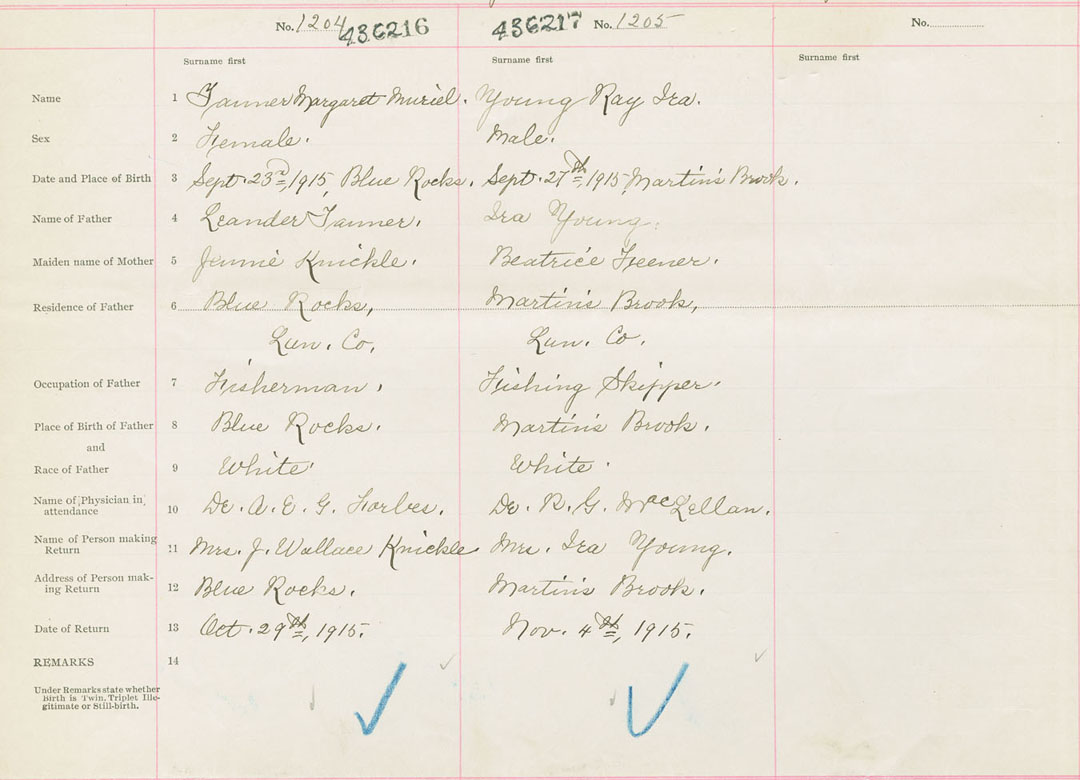 No. 1204 436216 436217 No. 1205 No.
Surname first Surname first Surname first
Name 1 Tanner Margaret Muriel. Young Ray Ira.
Sex 2 Female. Male.
Date and Place of Birth 3 Sept. 23rd, 1915, Blue Rocks. Sept. 27th, 1915, Martin's Brook.
Name of Father 4 Leander Tanner. Ira Young.
Maiden name of Mother 5 Jennie Knickle. Beatrice Feener.
Residence of Father 6 Blue Rocks, Martin's Brook,
Lun. Co. Lun. Co.
Occupation of Father 7 Fisherman. Fishing Skipper.
Place of Birth of Father 8 Blue Rocks. Martin's Brook.
and
Race of Father 9 White. White.
Name of Physician in
attendance 10 Dr. A. E. G. Forbes. Dr. R. G. MacLellan.
Name of Person making
Return 11 Mrs. J. Wallace Knickle Mrs. Ira Young.
Address of Person mak-
ing Return 12 Blue Rocks. Martin's Brook.
Date of Return 13 Oct. 29th, 1915. Nov. 4th, 1915.
REMARKS 14
Under Remarks state whether
Birth is Twin, Triplet Ille-
gitimate or Still-birth.